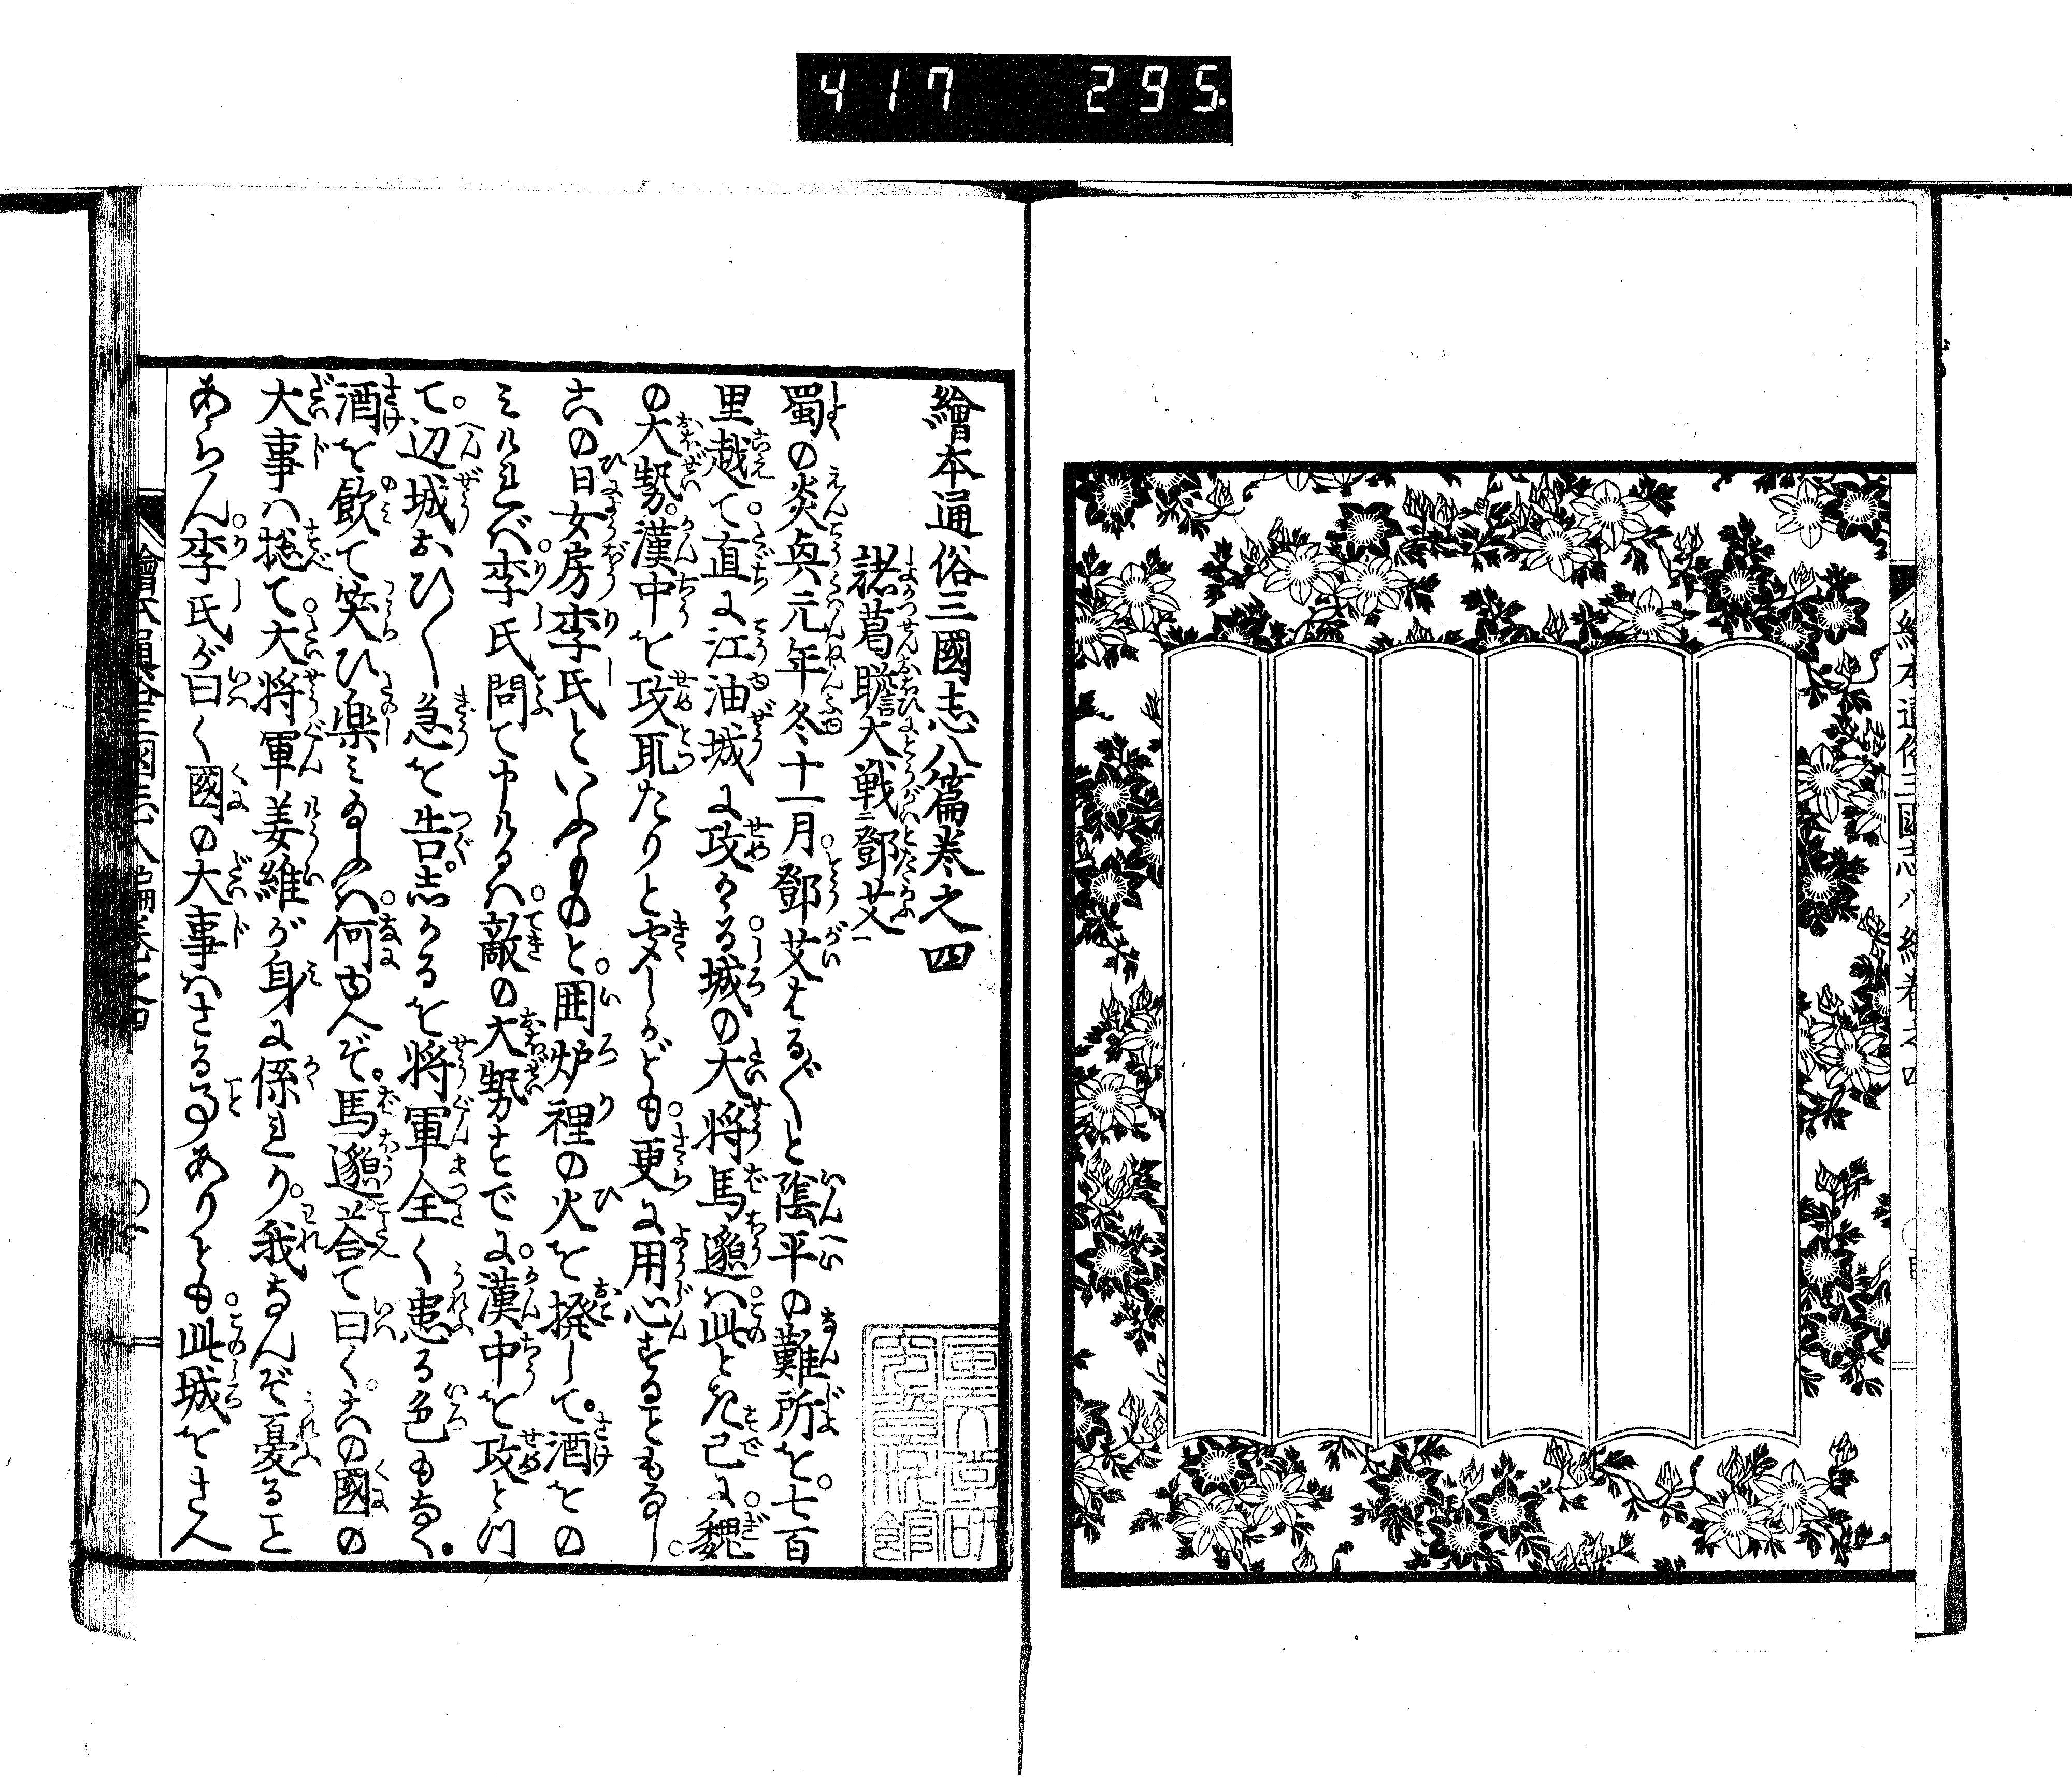 417 295.
繪本通俗三國志八篇巻之四
諸葛瞻大戦二鄧艾一
蜀の炎興元年冬十一月。鄧艾はる〲と陰平の難所を。七百
里越て。直に江油城に攻かる。城の大将馬邈ハ。此とき已に。魏
の大勢。漢中を攻取たりと聞しかども。更に用心することもなし。
この日女房李氏といふものと。囲炉裡の火を撥して。酒をの
みければ。李氏問て申けるハ。敵の大勢すでに。漢中を攻とつ
て。辺城おひ〳〵急を告。志かるを将軍全く患る色もなく。
酒を飲て笑ひ楽みたまふハ。何ゆへぞ。馬邈荅て曰く。この國の
大事ハ。捴て。大将軍姜維が身に係れり。我なんぞ憂ること
あらん。李氏が曰く國の大事ハさる事ありとも。此城をさへ